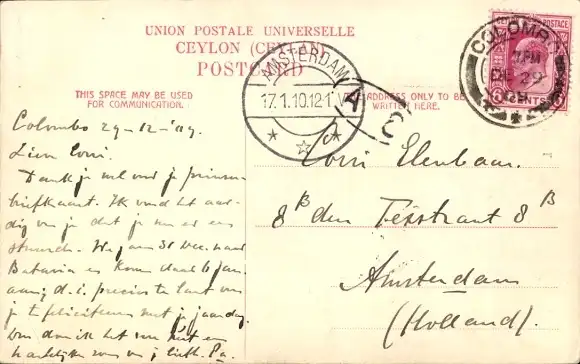 UNION POSTALE UNIVERSELLE
CEYLON (CEYLAN)
POSTCARD
THIS SPACE MAY BE USED
FOR COMMUNICATION.
THE ADDRESS ONLY TO BE
WRITTEN HERE.
COLOMBO
1 PM
DE 29
09
6 CENTS
AMSTERDAM
17.1.10.12-1
A
Colombo 29-12-'09.
Lieve Corri.
Dank je wel voor je prinsen
briefkaart. Ik vond het aar-
dig van je dat je me er een
stuurde. We gaan 31 Dec. naar
Batavia en komen daar 6 Jan.
aan; d.i. precies te laat om
je te feliciteeren met je jaardag.
hartelijke zoen van je liefh. Pa.
Corri Elenbaas.
8 B den Texstraat 8 B
Amsterdam
(Holland).